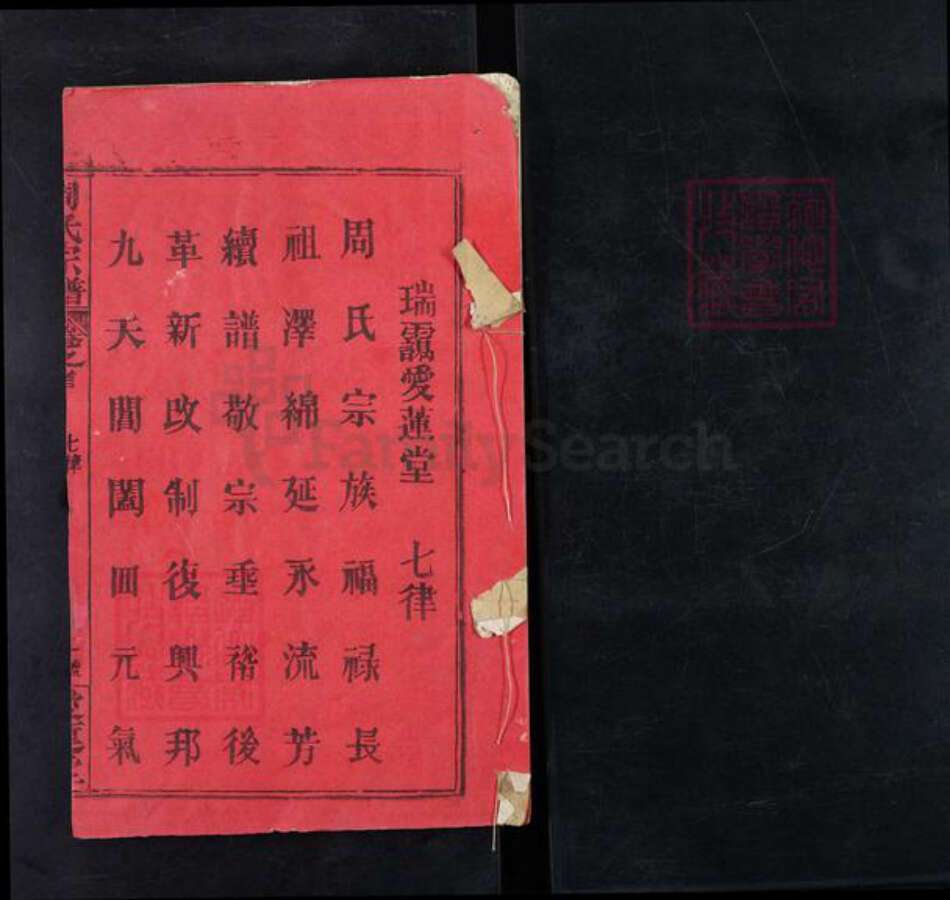 瑞靄愛蓮堂 七律
周氏宗族福祿長
祖澤綿延永流芳
續譜敬宗垂裕後
革新改制復興邦
九天閶闔回元氣
周氏宗譜 卷之首 七律
FamilySearch